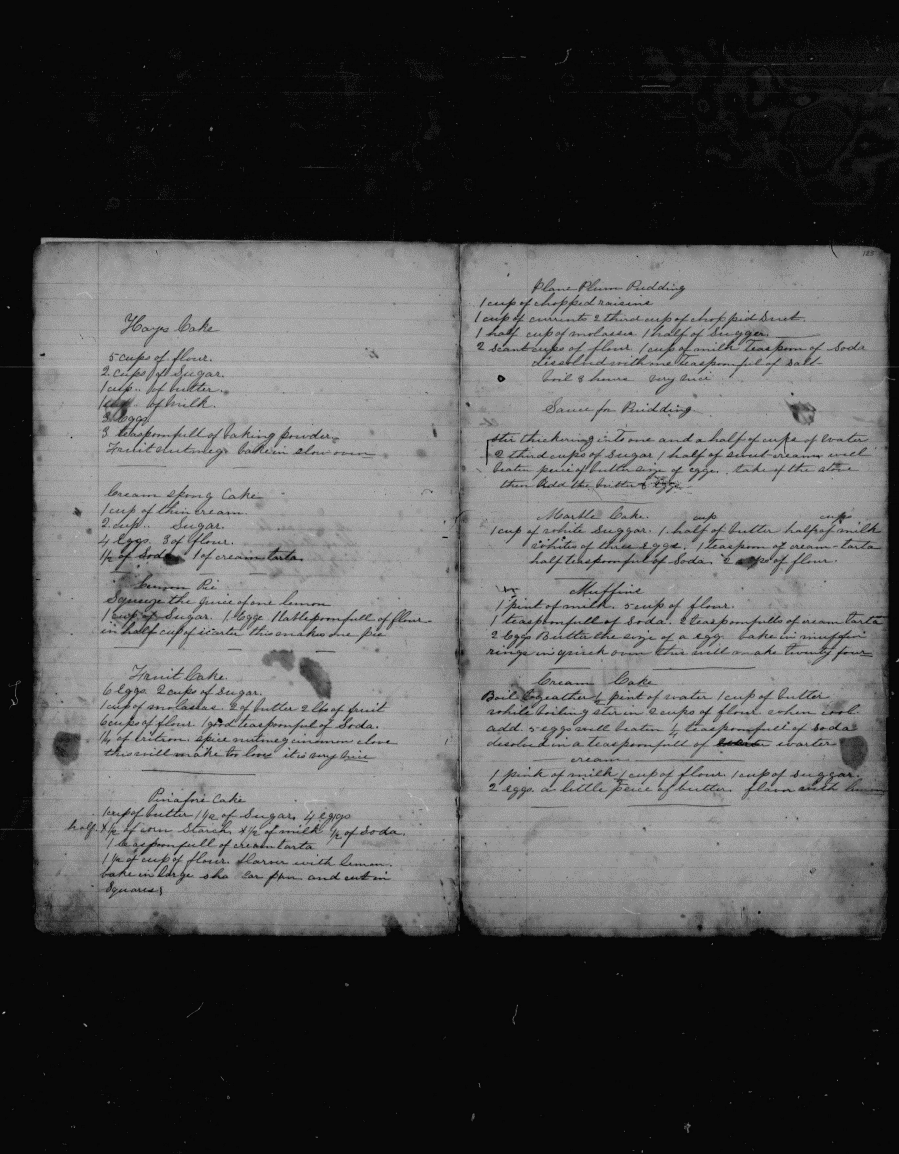 Hays Cake
5 cups of flour.
2 cups of Sugar.
1 cup .. of butter.
1 cup .. of milk.
3 Eggs
3 teaspoonfull of baking powder.
Fruit nutmeg bake in slow oven
Cream spong Cake
1 cup of thin cream
2 cup .. Sugar.
4 Eggs 3 of flour.
1/2 of Soda. 1 of cream tarta.
Lemon Pie
Squeeze the juice of one lemon
1 cup of Sugar. 1 Egge 1 tablespoonfull of flour
in half cup of warter this makes one pie
Fruit Cake
6 Eggs 2 cups of Sugar.
1 cup of molasses 2 of butter 2 lbs of fruit
6 cups of flour 1 good teaspoonful of Soda.
1/4 of sitron spice nutmeg cinamon clove
this will make to love it is very nice
Pinafore Cake
1 cup of butter 1 1/2 of Sugar, 4 eggs
half. x 1/2 of corn Starch x 1/2 of milk 1/2 of Soda.
1 teaspoonfull of cream tarta
1 1/2 of cup of flour flavor with lemon.
bake in large pan and cut in
Squares
185
Plane Plum Pudding
1 cup of chopped raisins
1 cup of currents 2 third cup of choppid Suet.
1 half cup of molasses 1 half of Sugger
2 scant cups of flour 1 cup of milk Teaspoon of Soda
dissolved with one teaspoonful of Salt
boil 3 hours very nice
Sauce for Pudding
ster thickering into one and a half of cups of water
2 third cups of Sugar 1 half of sweet cream well
beaten peice of butter size of egge. take of the stove
then Add the butter & Egge
Marble Cake. cup cup
1 cup of white Suggar. 1 half of butter half of milk
whites of three eggs. 1 teaspoon of cream-tarta
half teaspoonful of Soda. 2 of flour.
Muffins
1 pint of milk. 5 cup of flour.
1 teaspoonfull of Soda. 2 teaspoonfulls of cream tarta
2 Eggs Butter the size of a egg. bake in muffin
rings in quick oven this will make twenty four
Cream Cake
Boil togeather 1/2 pint of water 1 cup of butter
while boiling ster in 2 cups of flour when cool
add. 5 eggs well beaten 1/4 teaspoonfull of Soda
disolved in a teaspoonfull of warter
cream
1 pink of milk 1 cup of flour 1 cup of suggar.
2 eggs a little peice of butter. flavor with lemon